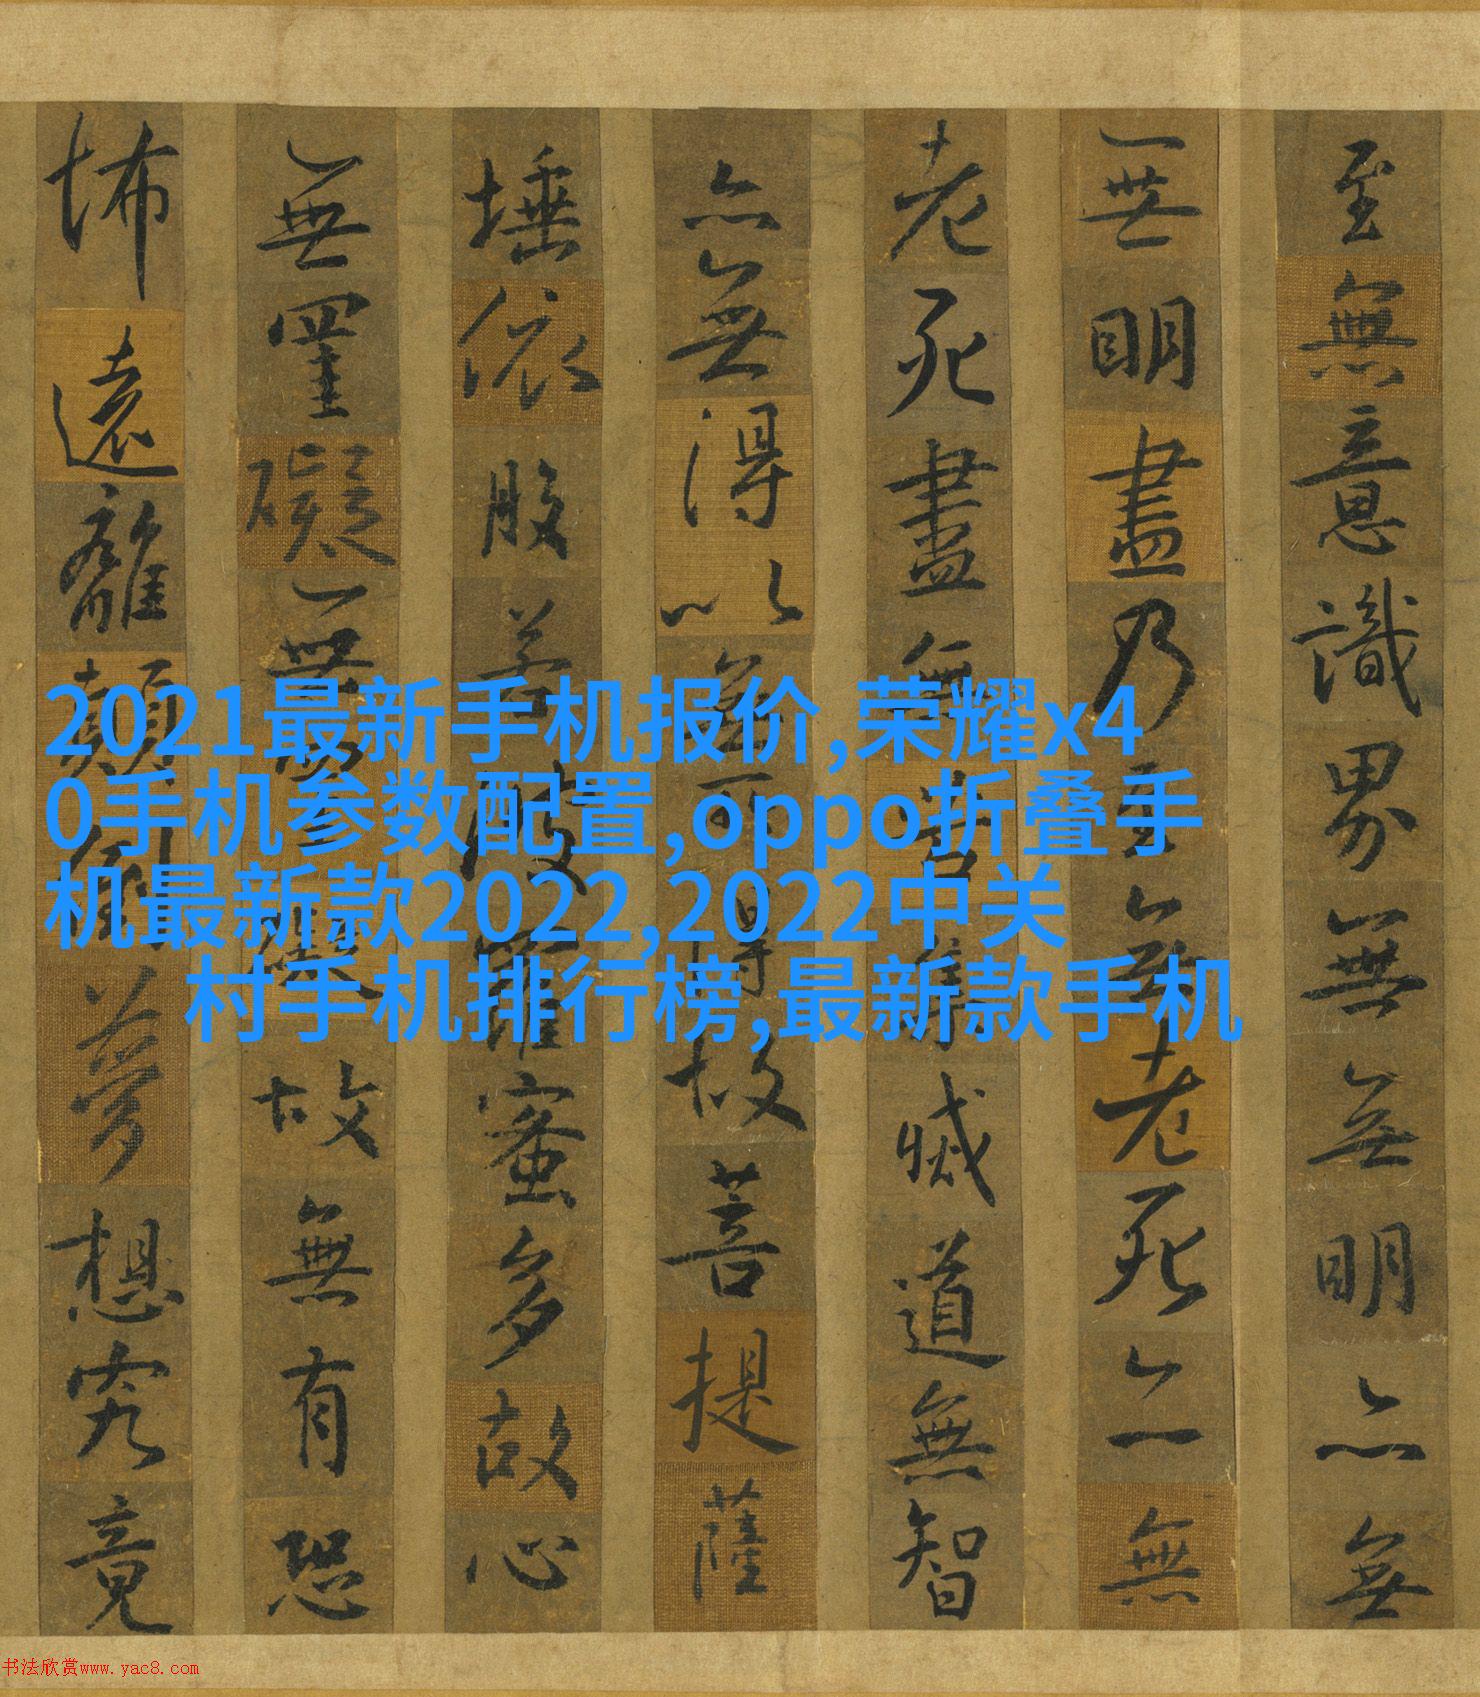 至無意識界無無明亦無
無明盡乃至無老死亦無
老死盡無苦集滅道無智
亦無得以無所得故菩提薩
埵依般若波羅蜜多故心
無罣礙無罣礙故無有恐
怖遠離顛倒夢想究竟
2021最新手机报价,荣耀x4
0手机参数配置,oppo折叠手
机最新款2022,2022中关
村手机排行榜,最新款手机
书法欣赏www.yac8.com